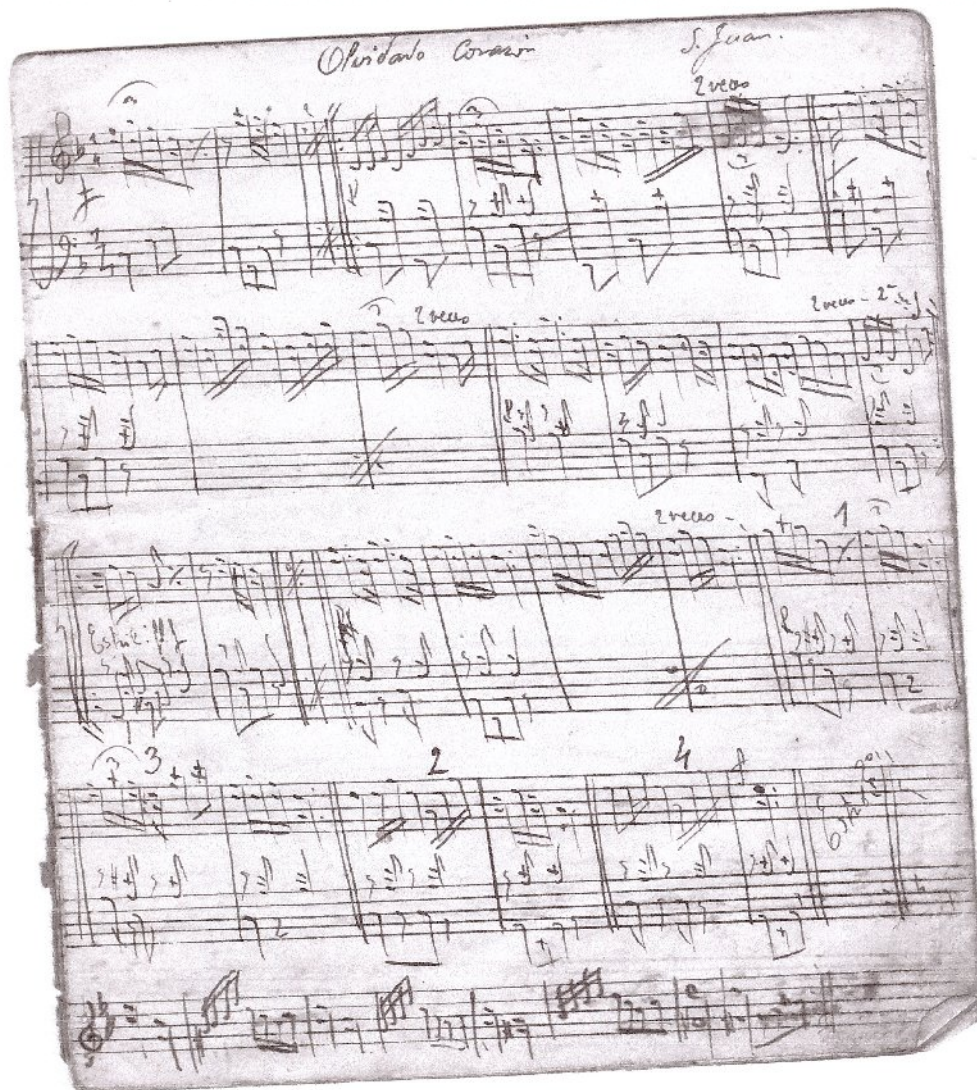 Olvidado Corazón S. Juan.
2 veces
2 veces 2 veces - 2ª
2 veces - 1
3 2 4